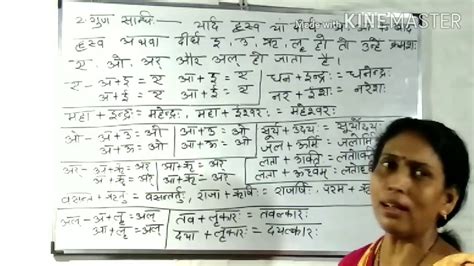 Made with
KINEMASTER
२. गुण सन्धि:— यदि ह्रस्व या दीर्घ
ह्रस्व अथवा दीर्घ इ, उ, ऋ, लृ हो तो उन्हें क्रमशः
ए, ओ, अर् और अल् हो जाता है।
ए - अ+इ = ए आ+इ = ए धन + इन्द्रः = धनेन्द्रः
अ+ई = ए आ+ई = ए नर + ईशः = नरेशः
महा + इन्द्रः = महेन्द्रः, महा + ईश्वरः = महेश्वरः
ओ - अ+उ = ओ आ+उ = ओ सूर्य + उदयः = सूर्योदयः
अ+ऊ = ओ आ+ऊ = ओ जल + ऊर्मि =
अर् - अ+ऋ = अर् आ+ऋ = अर् लता +
वसन्त + ऋतुः = वसन्तर्तुः, राजा + ऋषिः = राजर्षिः, परम +
अल् - अ+लृ = अल् तव + लृकारः = तवल्कारः
आ+लृ = अल् दया + लृकारः = दयल्कारः